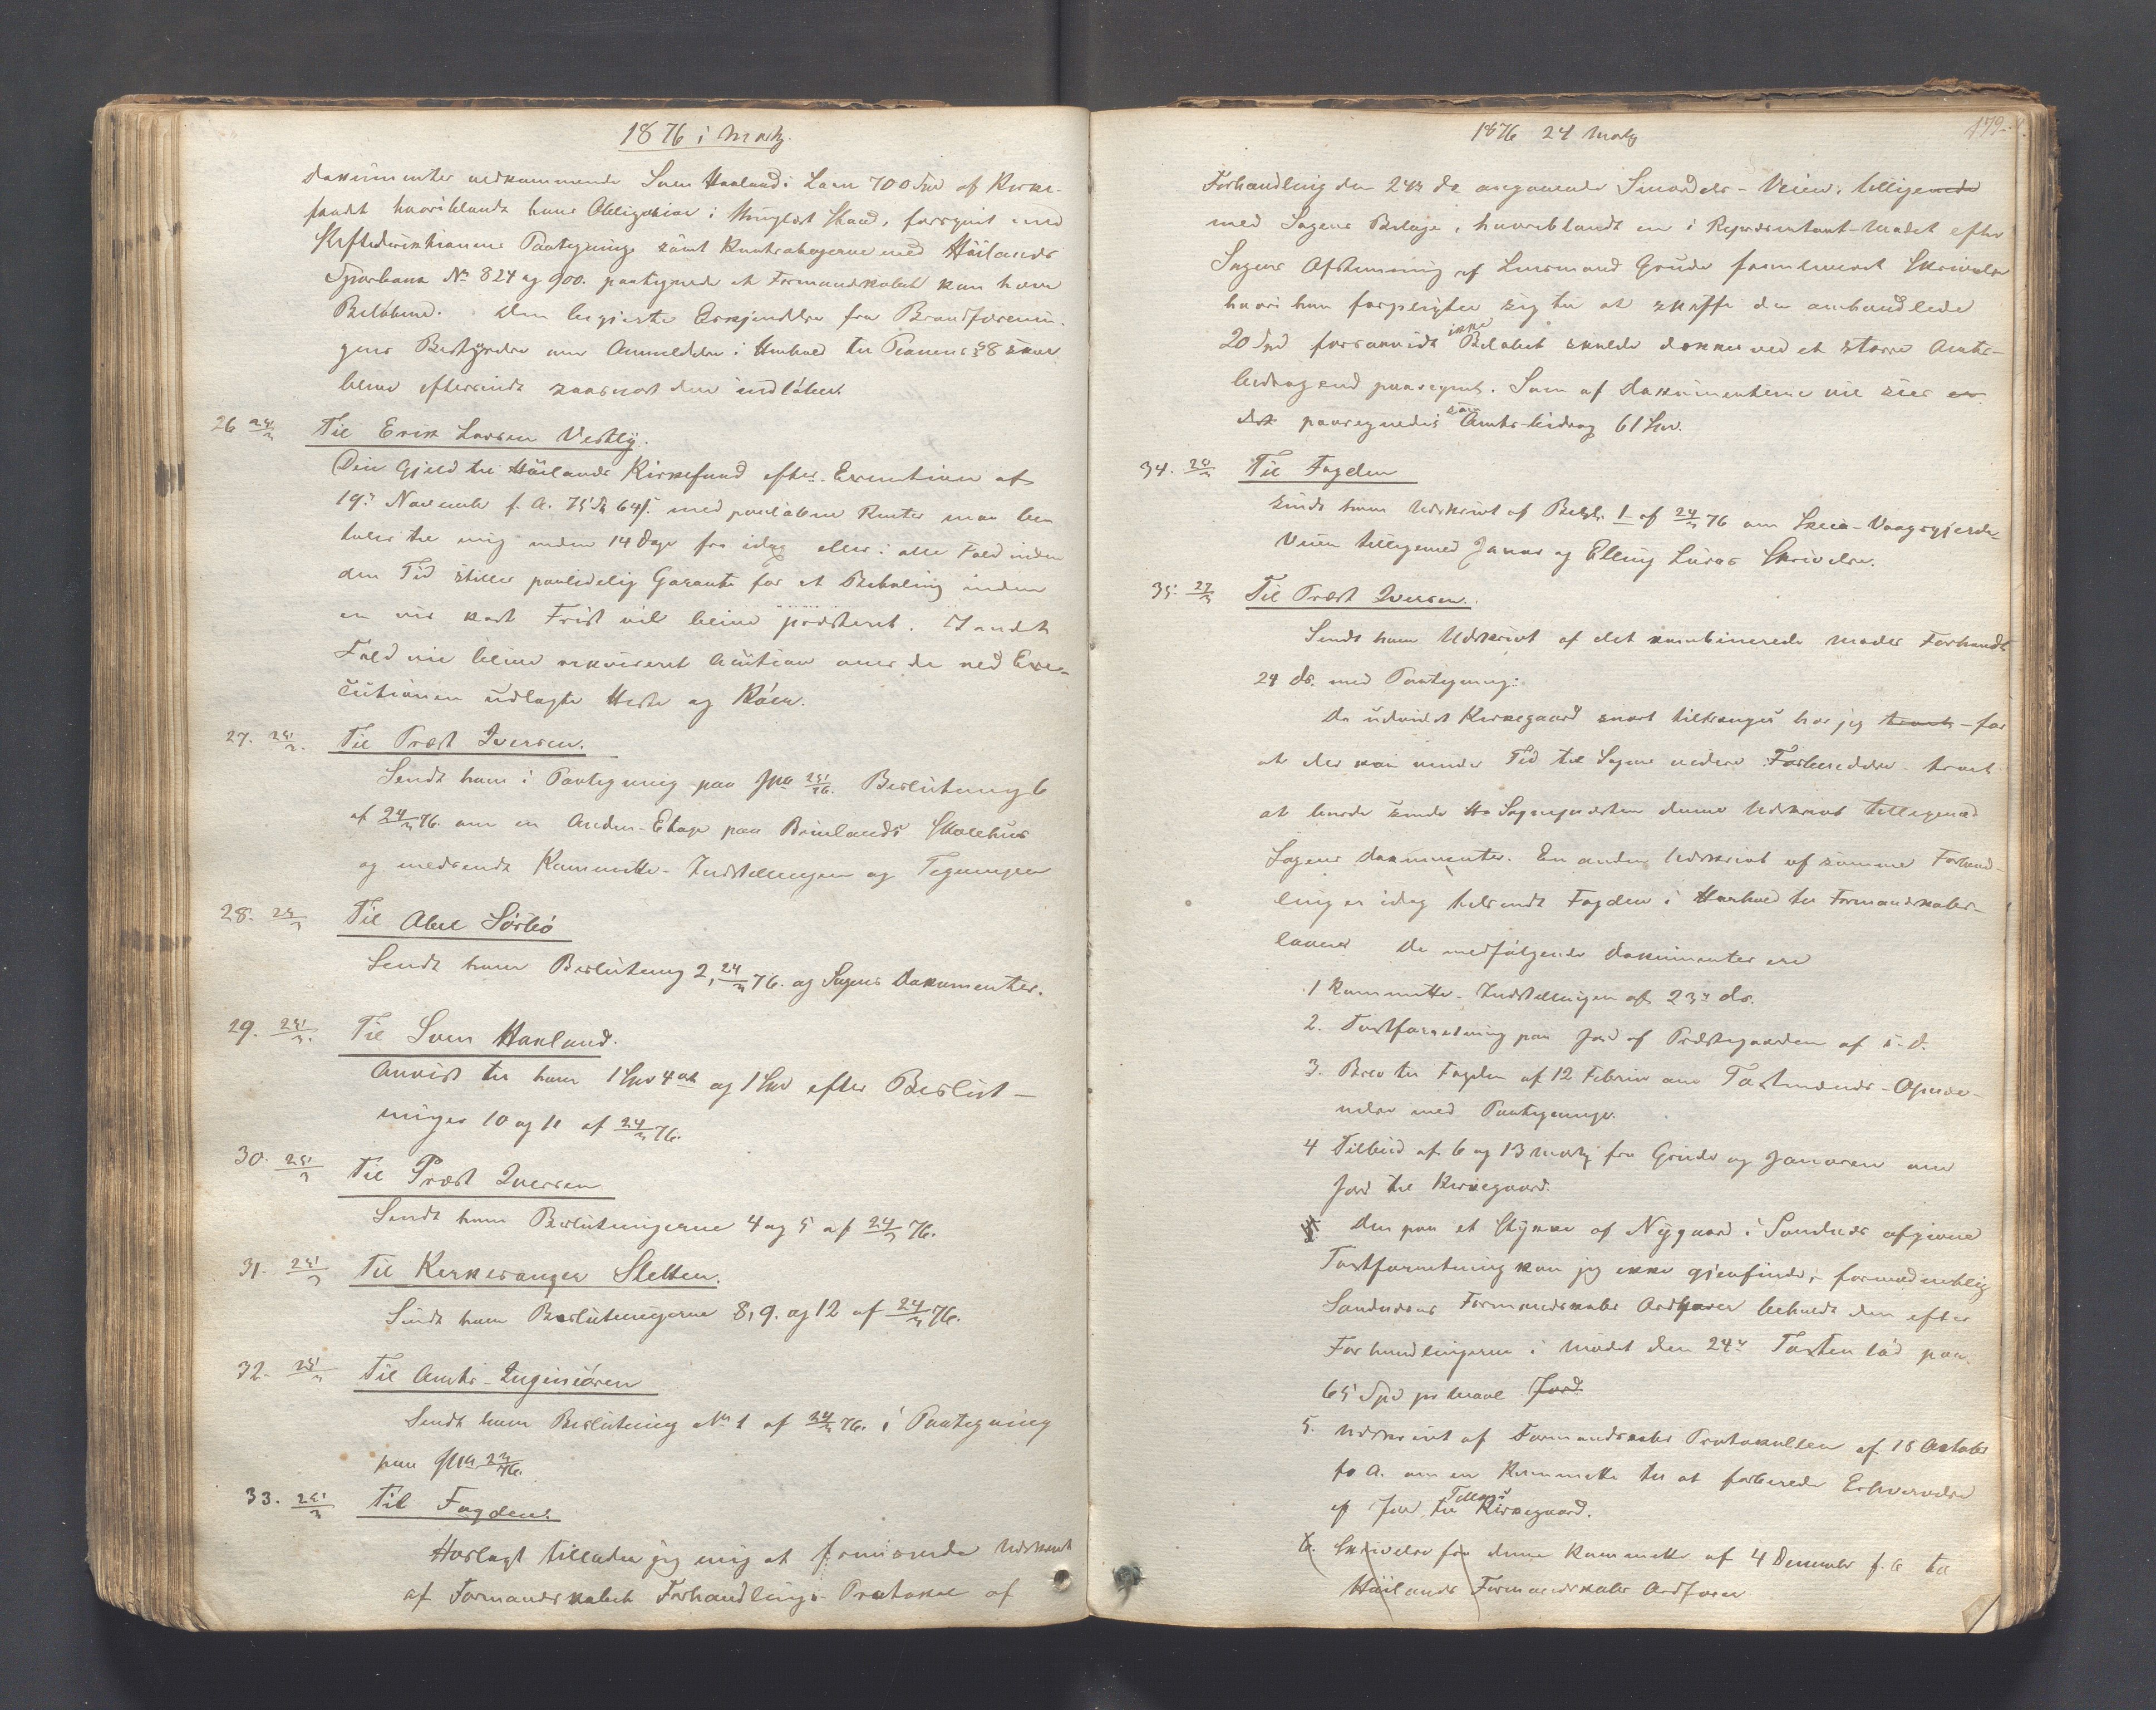 1876 i Marts.
Dokumenter vedkommende Sven Haalands Laan 700 Spd af Kirke-
fondet hvoriblandt hans Obligation i thinglæst Stand, forsynet med
Stiftsdirektionens Paategning samt Kontrabøgerne med Høilands
Sparebank No 824 og 900. paategnede at Formandskabet kan hæve
Beløbene. Den begjærte Erkjendelse fra Brandforenin-
gens Bestyrelse om Anmeldelse i Henhold til Planens § 8 skal
blive eftersendt saasnart den indløber.
26 25/3 Til Erik Larsen Vestly.
Din Gjeld til Høilands Kirkefond efter Execution af
19de November f. A. 75 Spd 64 s. med paaløbne Renter maa be-
tales til mig inden 14 Dage fra idag eller i alle Fald inden
den Tid stilles paalidelig Garanti for at Betaling inden
en vis kort Frist vil blive præsteret. I andet
Fald vil blive rekvireret Auction over de ved Exe-
cutionen udlagte Heste og Køer.
27. 25/3. Til Præst Iversen.
Sendt ham i Paategning paa 25/76. Beslutning 6
af 24/3 76. om en Anden-Etage paa Brualands Skolehus
og medsendt Kommitte-Indstillingen og Tegningen
28. 25/3 Til Abel Sørbø
Sendt ham Beslutning 2, 24/3 76. og Sagens Dokumenter.
29. 25/3. Til Sven Haaland.
Anvist til ham 1 Spd 4 ort og 1 Spd efter Beslut-
ninger 10 og 11 af 24/3 76.
30. 25/3 Til Præst Iversen
Sendt ham Beslutningerne 4 og 5 af 24/3 76.
31. 25/3 Til Kirkesanger Sletten.
Sendt ham Beslutningerne 8, 9. og 12 af 24/3 76.
32. 25/3 Til Amts-Ingeniøren
Sendt ham Beslutning No 1 af 24/3 76. i Paategning
paa
33. 25/3 Til Fogden.
Hoslagt tillader jeg mig at fremsende Udskrift
af Formandskabets Forhandlings-Protokol af
1876 24 Marts
179.
Forhandling den 24de ds angaaende Veien, tilligemed
med Sagens Bilage, hvoriblandt en i Repræsentant-Mødet efter
Sagens Afstemning af Lensmand Grude fremleveret Skrivelse
hvori han forpligter sig til at skaffe de omhandlede
20 Spd forsaavidt Beløbet ikke skulde dækkes ved et større Amts-
bidrag end paaregnet. Som af Dokumenterne vil sees er
det paaregnedes som Amts-bidrag 61 Spd.
34. 25/3 Til Fogden
Sendt ham Udskrivt af Beslt. 1 af 24/3 76 om Skeie-Vaagsgjerde-
Veien tilligemed Jonas og Elling Luras Skrivelse.
35. 27/3 Til Præst Iversen.
Sendt ham Udskrivt af det kombinerede Mødes Forhandl.
24 ds. med Paategning:
Da udvidet Kirkegaard snart tiltrænges har jeg troet - for
at der kan vinde Tid til Sagens videre Forberedelse - troet
at burde sende Hr Sognepræsten denne Udskrivt tilligemed
Sagens Dokumenter. En anden Udskrivt af samme Forhand-
ling er idag tilsendt Fogden i Henhold til Formandskabs-
loven. De medfølgende Dokumenter ere
1 Kommitte-Indstillingen af 23de ds.
2. Taxtforretning paa Jord af Præstegaarden af s. D.
3. Brev til Fogden af 12 Februar om Taxtmænds-Opnæv-
nelse med Paategninge.
4 Tilbud af 6 og 13 Marts fra Grude og Jonasen om
Jord til Kirkegaard.
Den paa et Stykke af Nygaard i Sandnes afgivne
Taxtforretning kan jeg ikke gjenfinde; formodentlig
Sandnæs Formandskabs Ordfører beholdt den efter
Forhandlingerne i Mødet den 24de Taxten lød paa
65 Spd pr Maal Jord.
5. Udskrivt af Formandskabs Protokollen af 18 Oktober
f. A. om en Kommitte til at forberede Erhvervelse
af Jord til Tillægs Kirkegaard.
6. Skrivelse fra denne Kommitte af 4 December f. A til
Høilands Formandskabs Ordfører